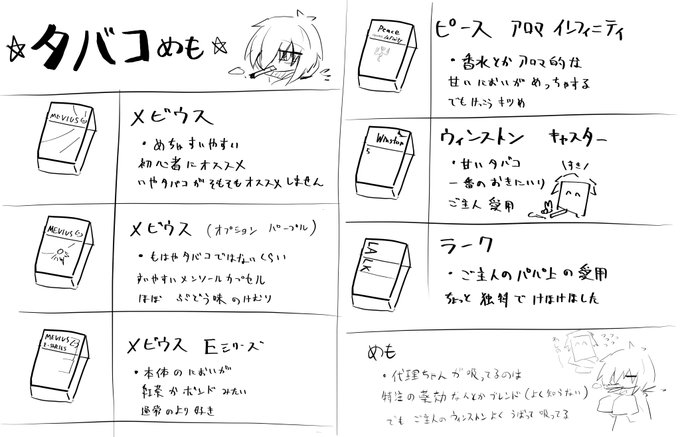 ☆タバコめも☆
MEVIUS
メビウス
・めちゃすいやすい
初心者にオススメ
いやタバコがそもそもオススメしません
MEVIUS
メビウス (オプション パープル)
・もはやタバコではないくらい
すいやすいメンソールカプセル
ほぼ ぶどう味のけむり
MEVIUS
E-SERIES
メビウス Eシリーズ
・本体のにおいが
紅茶かボンドみたい
通常のより好き
Peace
infinity
ピース アロマ インフィニティ
・香水とかアロマ的な
甘いにおいがめっちゃする
でもけっこうキツめ
Winston
5
ウィンストン キャスター
・甘いタバコ
一番のおきにいり
ご主人 愛用
すき!
LARK
ラーク
・ご主人のパパ上の愛用
ちょっと独特でけほけほした
めも
・代理ちゃんが吸ってるのは
特注の薬効な人とかブレンド(よく知らない)
でもご主人のウィンストンよくうばって吸ってる